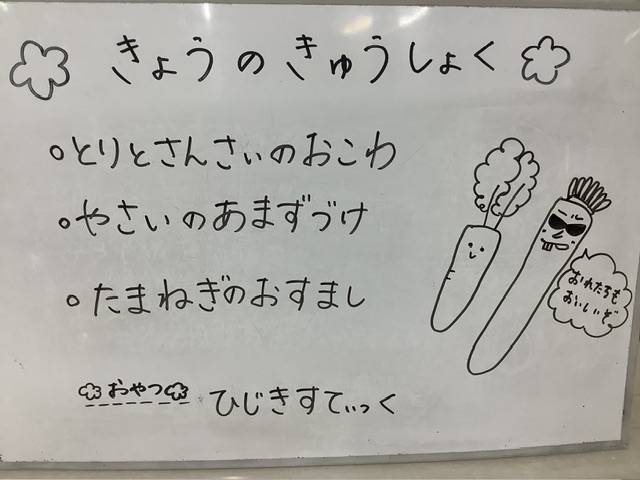 きょうのきゅうしょく
とりとさんさいのおこわ
やさいのあまずづけ
たまねぎのおすまし
おやつ ひじきすてぃっく
おれたちも
おいしいぞ